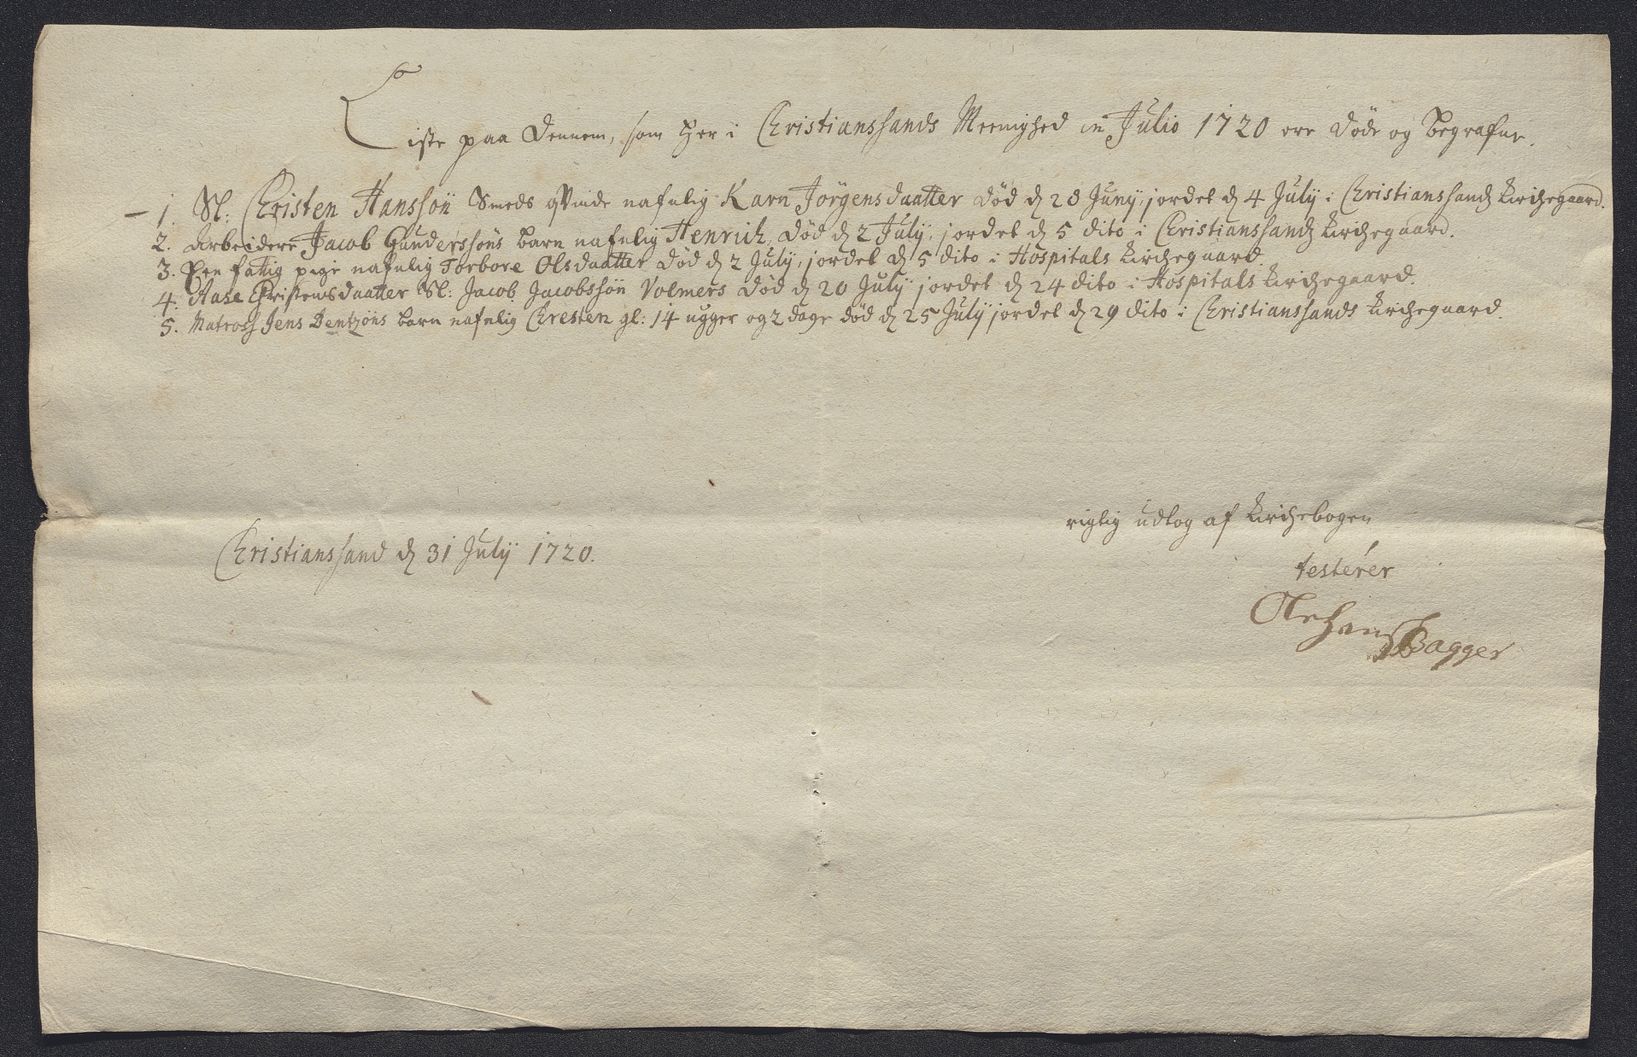 Liste paa dennem, som her i Christianssands Meenighed in Julio 1720 ere døde og begrafne.
1. Sl: Christen Hanssøn Smeds qvinde nafnlig Karn Jørgensdaatter død d. 28 Junÿ, jordet d. 4 Julÿ i Christianssands Kirchegaard.
2. Arbeidere Jacob Gunderssøns barn nafnlig Henrich, død d. 2 Julÿ, jordet d. 5 dito i Christianssands Kirchegaard.
3. Een fattig pige nafnlig Torbore Olsdaatter død d. 2 Julÿ, jordet d. 5 dito i Hospitals Kirchegaard.
4. Aase Christensdaatter Sl: Jacob Jacobssøn Volmers død d. 20 Julÿ jordet d. 24 dito i Hospitals Kirchegaard.
5. Matros Jens Bentzøns barn nafnlig Chresten gl: 14 ugger og 2 dage død d. 25 Julÿ jordet d. 29 dito i Christianssands Kirchegaard.
rigtig udtog af Kirchebogen
Christianssand d. 31 Julÿ 1720.
testerer
Ole Hans Bagger